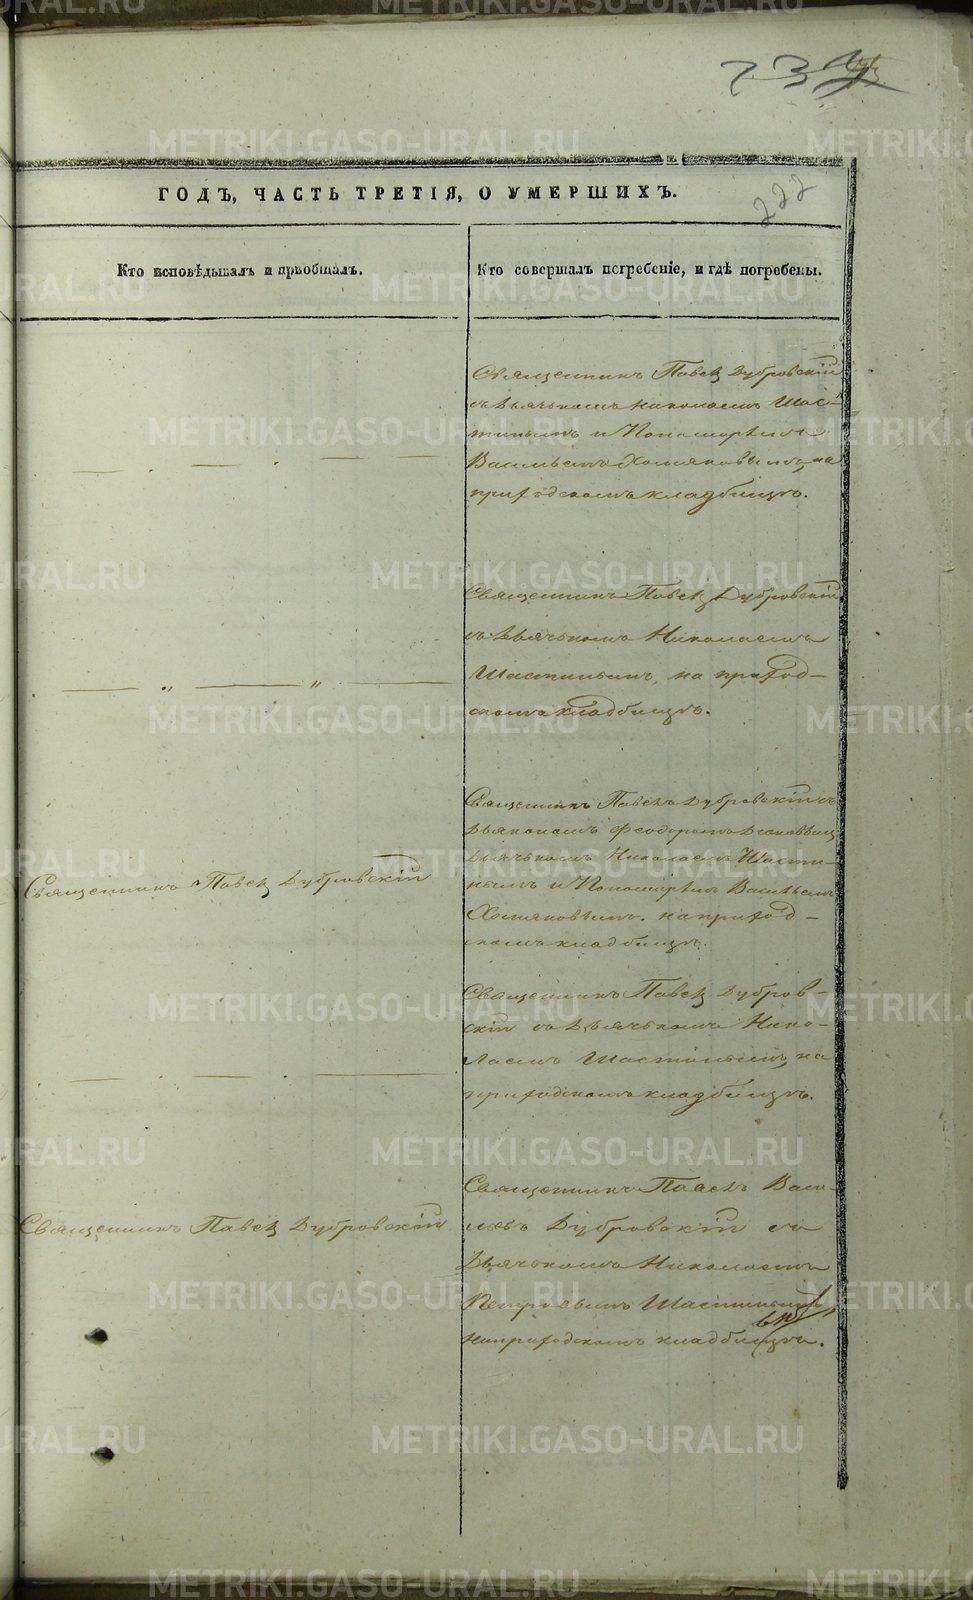 222
ГОДЪ, ЧАСТЬ ТРЕТІЯ, О УМЕРШИХЪ.
Кто исповѣдывалъ и пріобщалъ.
Кто совершалъ погребеніе, и гдѣ погребены.
Священникъ Павелъ Дубровскій
съ Дьячькомъ Николаемъ Шас-
тинымъ и Пономаремъ
Васильемъ Хомяковымъ, на
приходскомъ кладбищѣ.
Священникъ Павелъ Дубровскій
съ Дьячькомъ Николаемъ
Шастинымъ, на приход-
скомъ кладбищѣ.
Священникъ Павелъ Дубровскій
Священникъ Павелъ Дубровскій съ
Дьякономъ Феодоромъ
Дьячькомъ Николаемъ Шасти-
нымъ и Пономаремъ Васильемъ
Хомяковымъ. на приход-
скомъ кладбищѣ.
Священникъ Павелъ Дубров-
скій съ Дьячькомъ Нико-
лаемъ Шастинымъ, на
приходскомъ кладбищѣ.
Священникъ Павелъ Дубровскій
Священникъ Павелъ Васи-
льевъ Дубровскій съ
Дьячькомъ Николаемъ
Петровымъ Шастинымъ,
на приходскомъ кладбищѣ.
METRIKI.GASO-URAL.RU